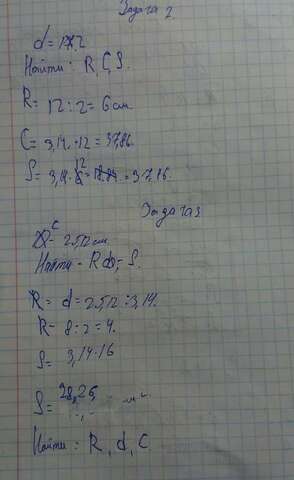 Задача 2.
d = 12
Найти: R, C, S.
R = 12 : 2 = 6 см
C = 3,14 · 12 = 37,86.
S = 3,14 · 12 = 37,86.
Задача 3
C = 25,12 см
Найти - R d, S.
R = d = 25,12 : 3,14.
R = 8 : 2 = 4.
S = 3,14 · 16
S = 28,26,
Найти : R, d, C